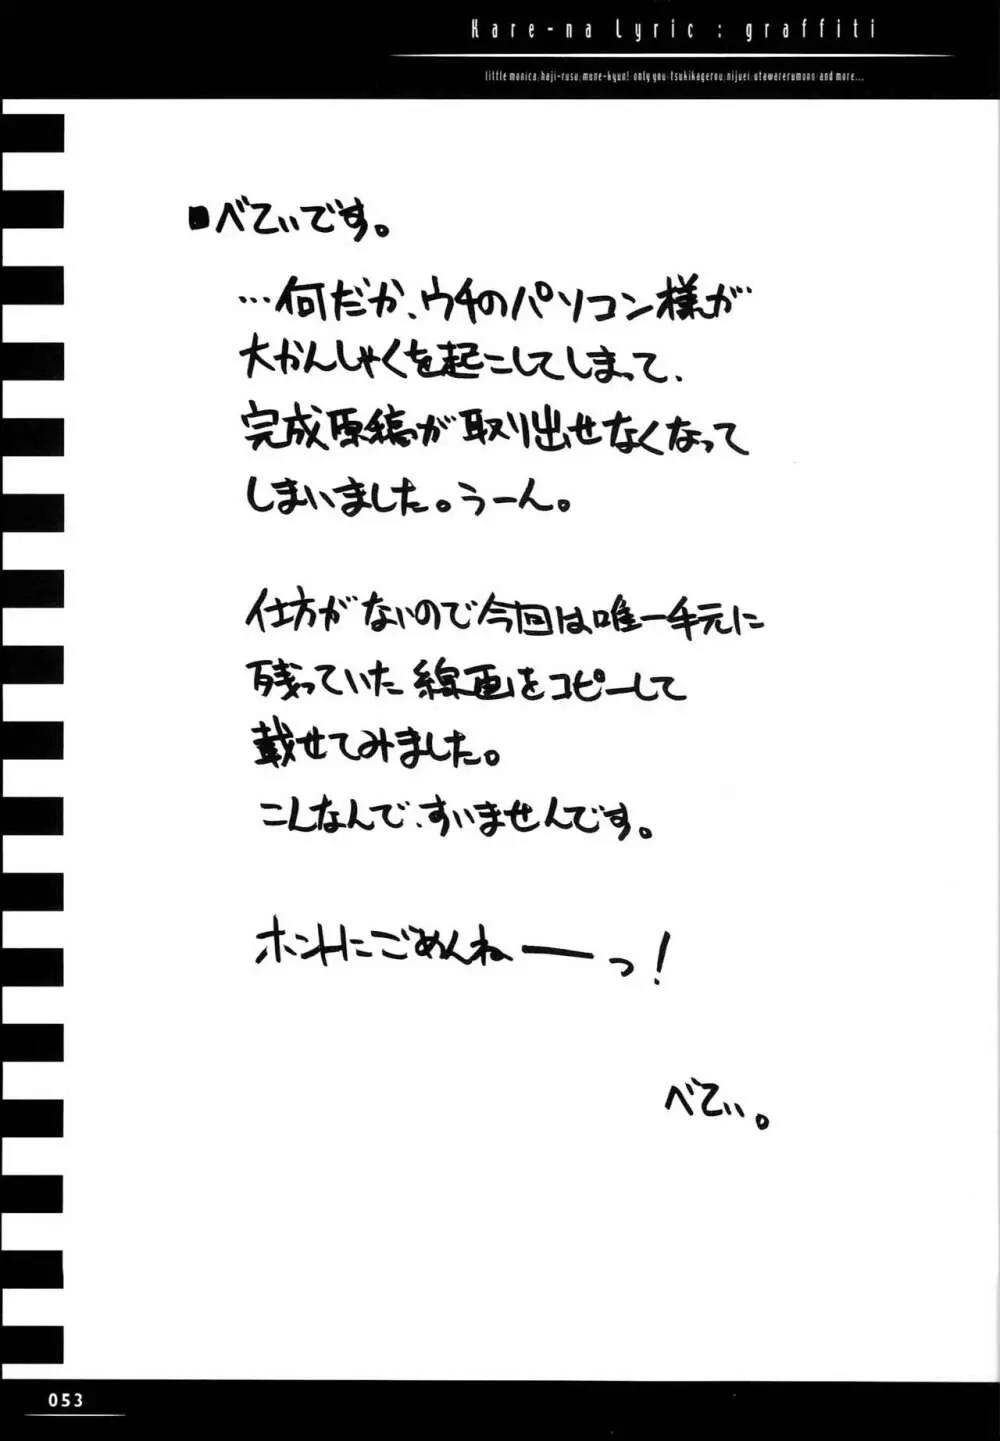 Kare-na Lyric : graffiti
little monica/haji-rusu/mune-kyun!/only you/tsukikagerou/nijuei/utawarerumono and more...
■べてぃです。
…何だか、ウチのパソコン様が
大かんしゃくを起こしてしまって、
完成原稿が取り出せなくなって
しまいました。うーん。
仕方がないので今回は唯一手元に
残っていた線画をコピーして
載せてみました。
こんなんで、すいませんです。
ホントにごめんねーーっ!
べてぃ。
053